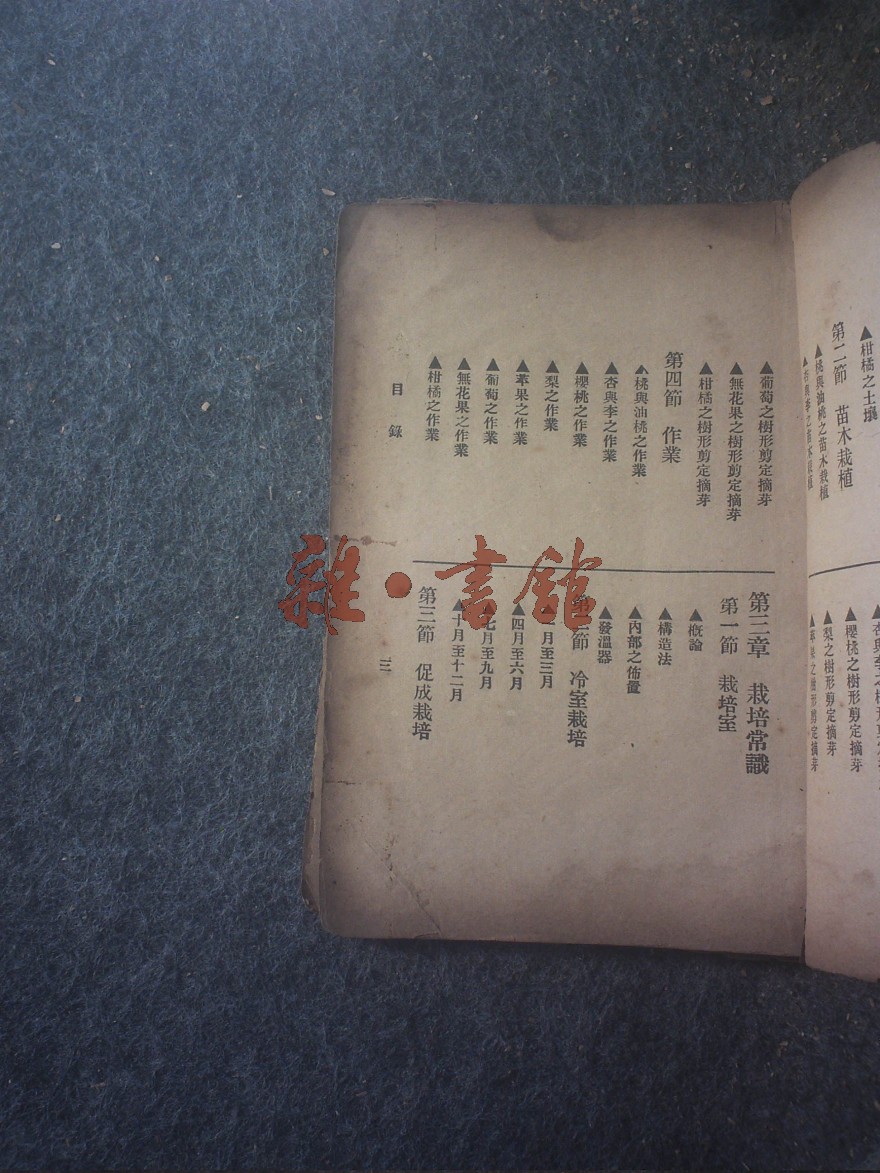 ▲柑橘之土壤
第二節　苗木栽植
▲桃與油桃之苗木栽植
▲櫻桃之樹形剪定摘芽
▲梨之樹形剪定摘芽
▲苹果之樹形剪定摘芽
▲葡萄之樹形剪定摘芽
▲無花果之樹形剪定摘芽
▲柑橘之樹形剪定摘芽
第四節　作業
▲桃與油桃之作業
▲杏與李之作業
▲櫻桃之作業
▲梨之作業
▲苹果之作業
▲葡萄之作業
▲無花果之作業
▲柑橘之作業
第三章　栽培常識
第一節　栽培室
▲概論
▲構造法
▲內部之佈置
▲發溫器
節　冷室栽培
月至三月
▲四月至六月
七月至九月
十月至十二月
第三節　促成栽培
目錄
三
雜·書館